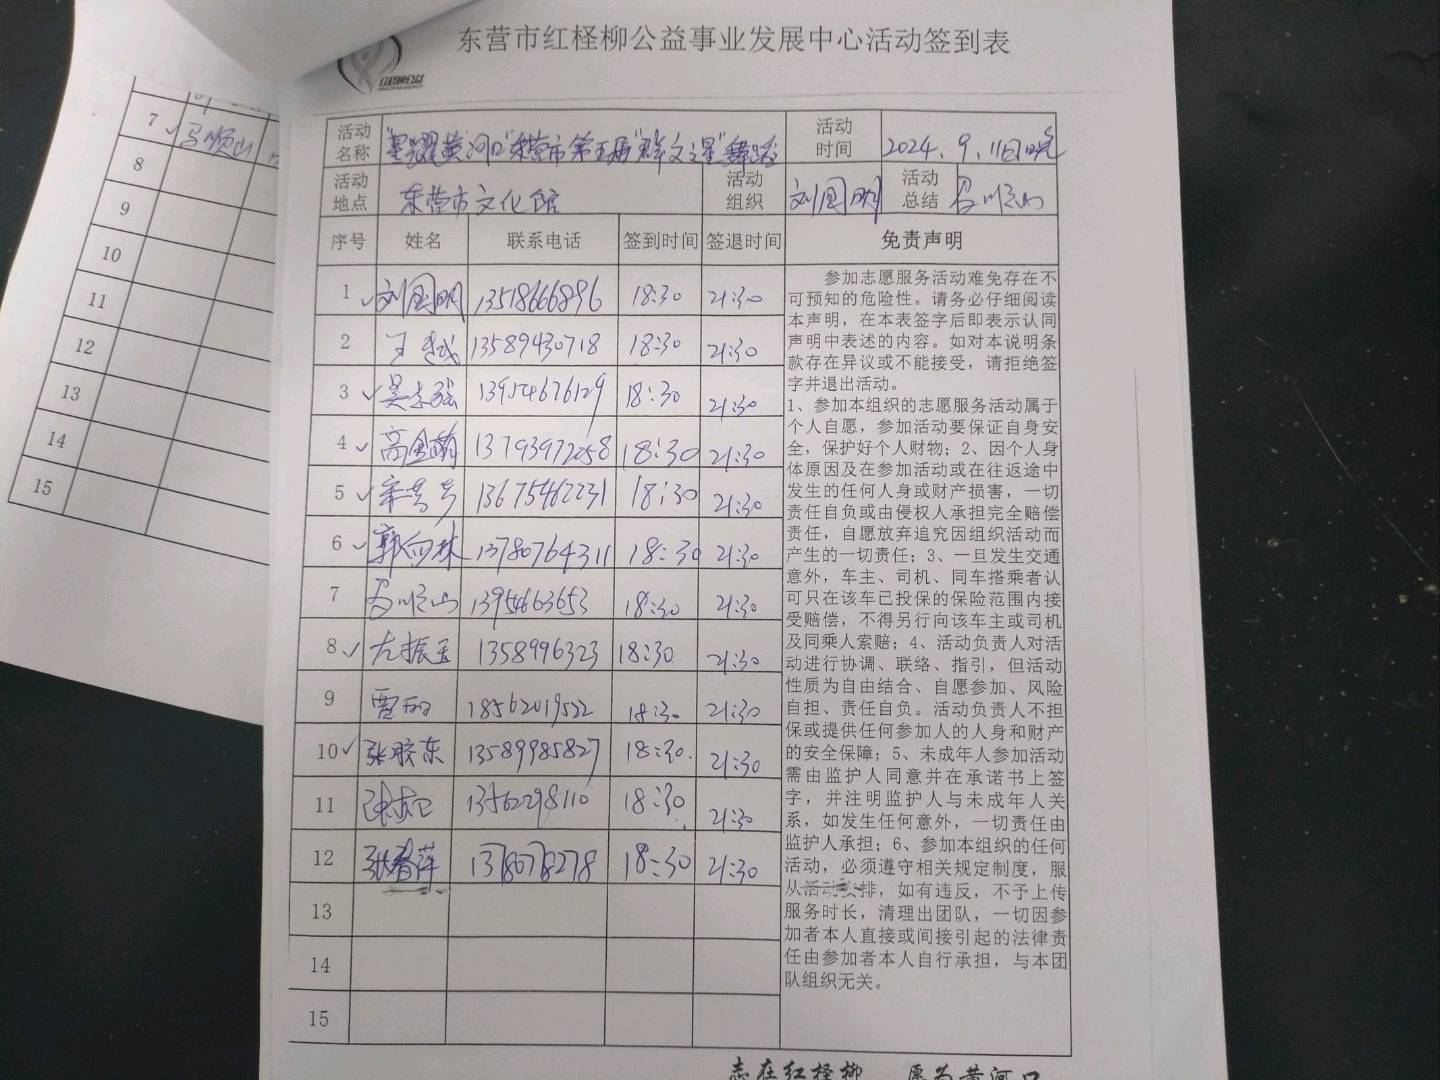 东营市红柽柳公益事业发展中心活动签到表
7 马顺山
8
9
10
11
12
13
14
15
活动名称 "星耀黄河口"东营市第五届"群文之星"舞蹈 活动时间 2024.9.11日晚
活动地点 东营市文化馆 活动组织 刘国明 活动总结 马顺山
序号 姓名 联系电话 签到时间 签退时间 免责声明
1 刘国明 13518666896 18:30 21:30
2 王 13589430718 18:30 21:30
3 吴 13954676129 18:30 21:30
4 高金萌 13793972058 18:30 21:30
5 13675462231 18:30 21:30
6 郭向林 13780764311 18:30 21:30
7 马顺山 1395463653 18:30 21:30
8 尤振玉 1358996323 18:30 21:30
9 贾 18562019522 18:30 21:30
10 张胶东 13589985827 18:30 21:30
11 张 13562298110 18:30 21:30
12 张春萍 1378078278 18:30 21:30
13
14
15
参加志愿服务活动难免存在不
可预知的危险性。请务必仔细阅读
本声明，在本表签字后即表示认同
声明中表述的内容。如对本说明条
款存在异议或不能接受，请拒绝签
字并退出活动。
1、参加本组织的志愿服务活动属于
个人自愿，参加活动要保证自身安
全，保护好个人财物；2、因个人身
体原因及在参加活动或在往返途中
发生的任何人身或财产损害，一切
责任自负或由侵权人承担完全赔偿
责任，自愿放弃追究因组织活动而
产生的一切责任；3、一旦发生交通
意外，车主、司机、同车搭乘者认
可只在该车已投保的保险范围内接
受赔偿，不得另行向该车主或司机
及同乘人索赔；4、活动负责人对活
动进行协调、联络、指引，但活动
性质为自由结合、自愿参加、风险
自担、责任自负。活动负责人不担
保或提供任何参加人的人身和财产
的安全保障；5、未成年人参加活动
需由监护人同意并在承诺书上签
字，并注明监护人与未成年人关
系，如发生任何意外，一切责任由
监护人承担；6、参加本组织的任何
活动，必须遵守相关规定制度，服
从活动安排，如有违反，不予上传
服务时长，清理出团队，一切因参
加者本人直接或间接引起的法律责
任由参加者本人自行承担，与本团
队组织无关。
志在红柽柳 愿为黄河口